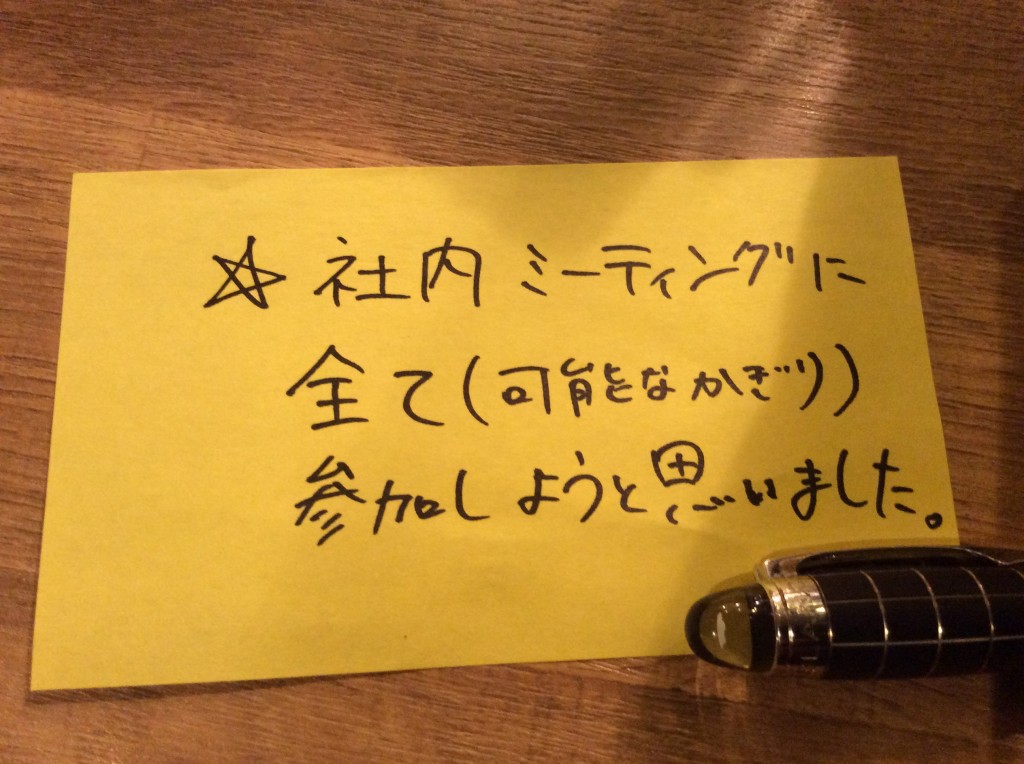 ☆ 社内ミーティングに
全て(可能なかぎり)
参加しようと思いました。